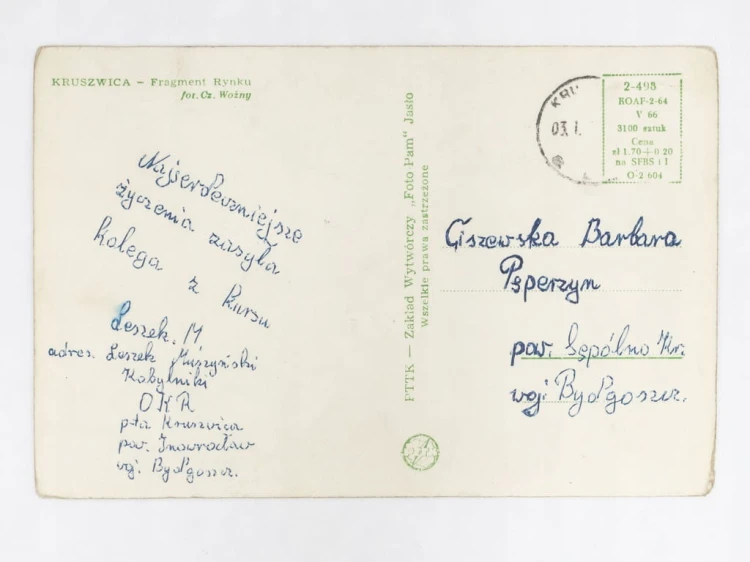 KRUSZWICA – Fragment Rynku
fot. Cz. Woźny
Najserdeczniejsze
życzenia zasyła
kolega z kursu
Leszek. M
adres. Leszek Muszyński
Kobylniki
OKR
p-ta Kruszwica
pow. Inowrocław
woj. Bydgoszcz.
PTTK — Zakład Wytwórczy „Foto-Pam" Jasło
Wszelkie prawa zastrzeżone
KRU
03. I.
2-498
ROAF-2-64
V 66
3100 sztuk
Cena
zł 1.70+0.20
na SFBS i I
O-2 604
Ciszewska Barbara
Pęperzyn
pow. Sępólno Kr.
woj. Bydgoszcz.